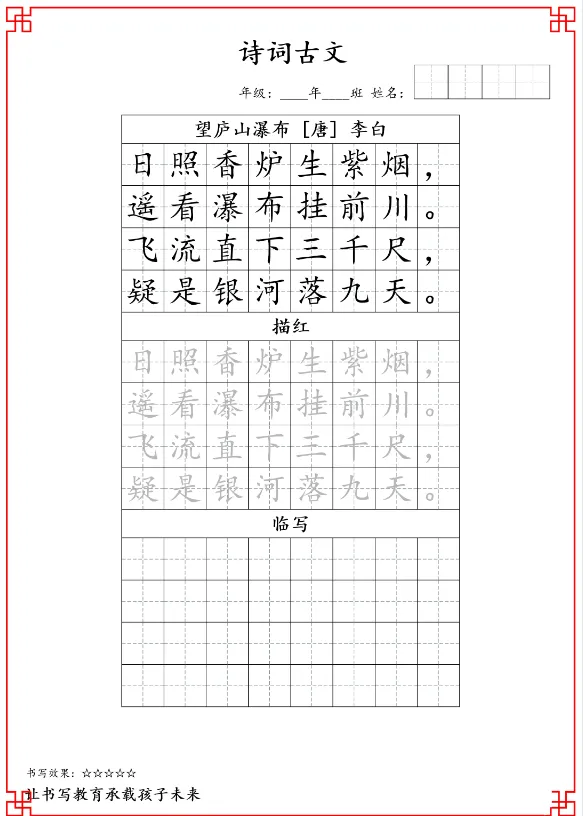 诗词古文
年级：____年____班 姓名：
望庐山瀑布 [唐] 李白
日照香炉生紫烟，
遥看瀑布挂前川。
飞流直下三千尺，
疑是银河落九天。
描红
日照香炉生紫烟，
遥看瀑布挂前川。
飞流直下三千尺，
疑是银河落九天。
临写
书写效果：☆☆☆☆☆
让书写教育承载孩子未来